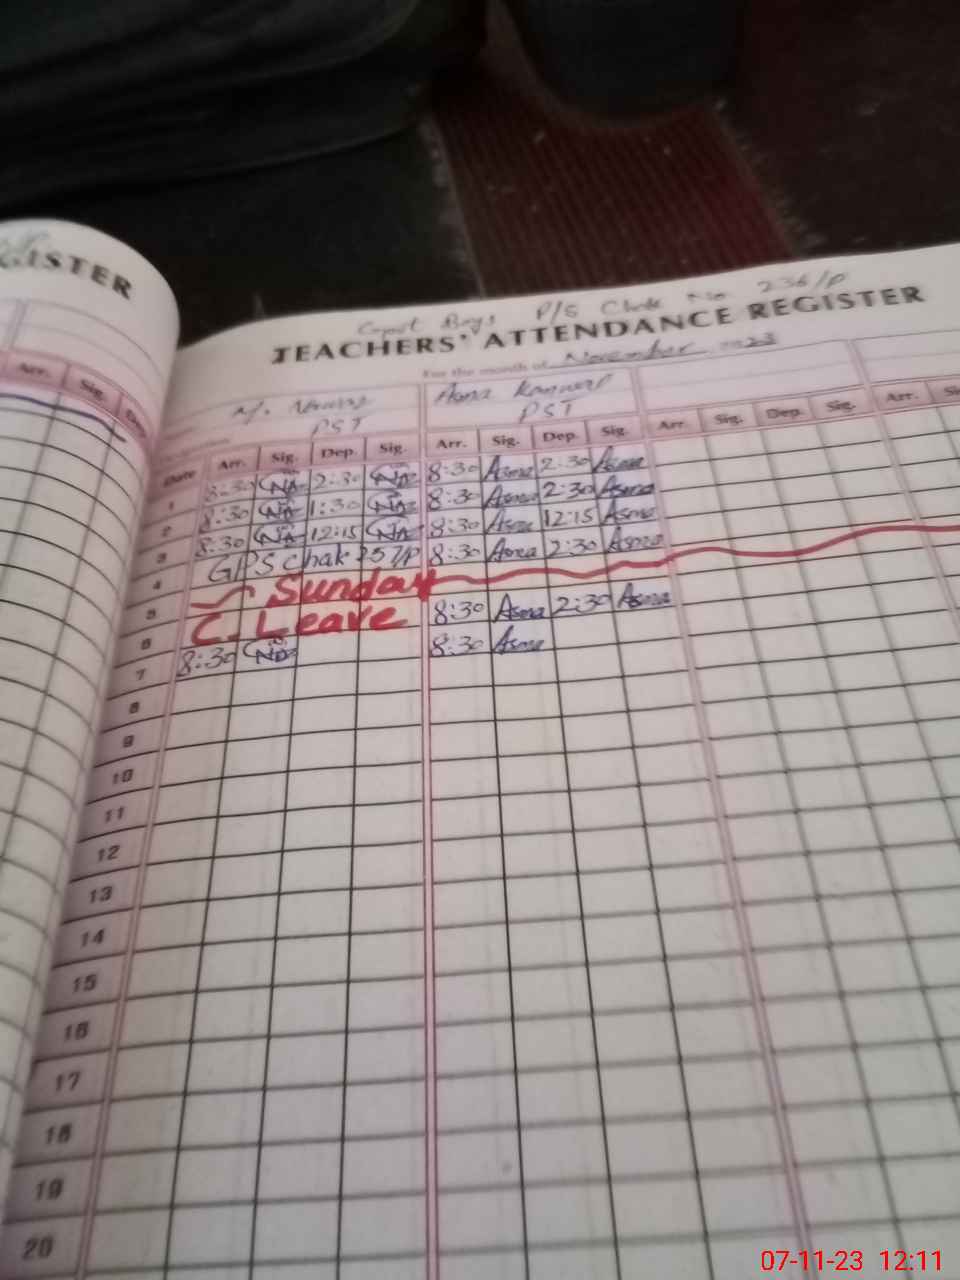 GISTER
Govt Boys P/S Chak No 236/P
TEACHERS' ATTENDANCE REGISTER
For the month of November 2023
M. Nawaz Asma Kanwal
PST PST
Arr. Sig. Date Arr. Sig. Dep. Sig. Arr. Sig. Dep. Sig. Arr. Sig. Dep. Sig. Arr.
1 8:30 2:30 8:30 Asma 2:30 Asma
2 8:30 1:30 8:30 Asma 2:30 Asma
3 8:30 12:15 8:30 Asma 12:15 Asma
4 GPS Chak 257/P 8:30 Asma 2:30 Asma
5 Sunday
6 C. Leave 8:30 Asma 2:30 Asma
7 8:30 8:30 Asma
8
9
10
11
12
13
14
15
16
17
18
19
20
07-11-23 12:11